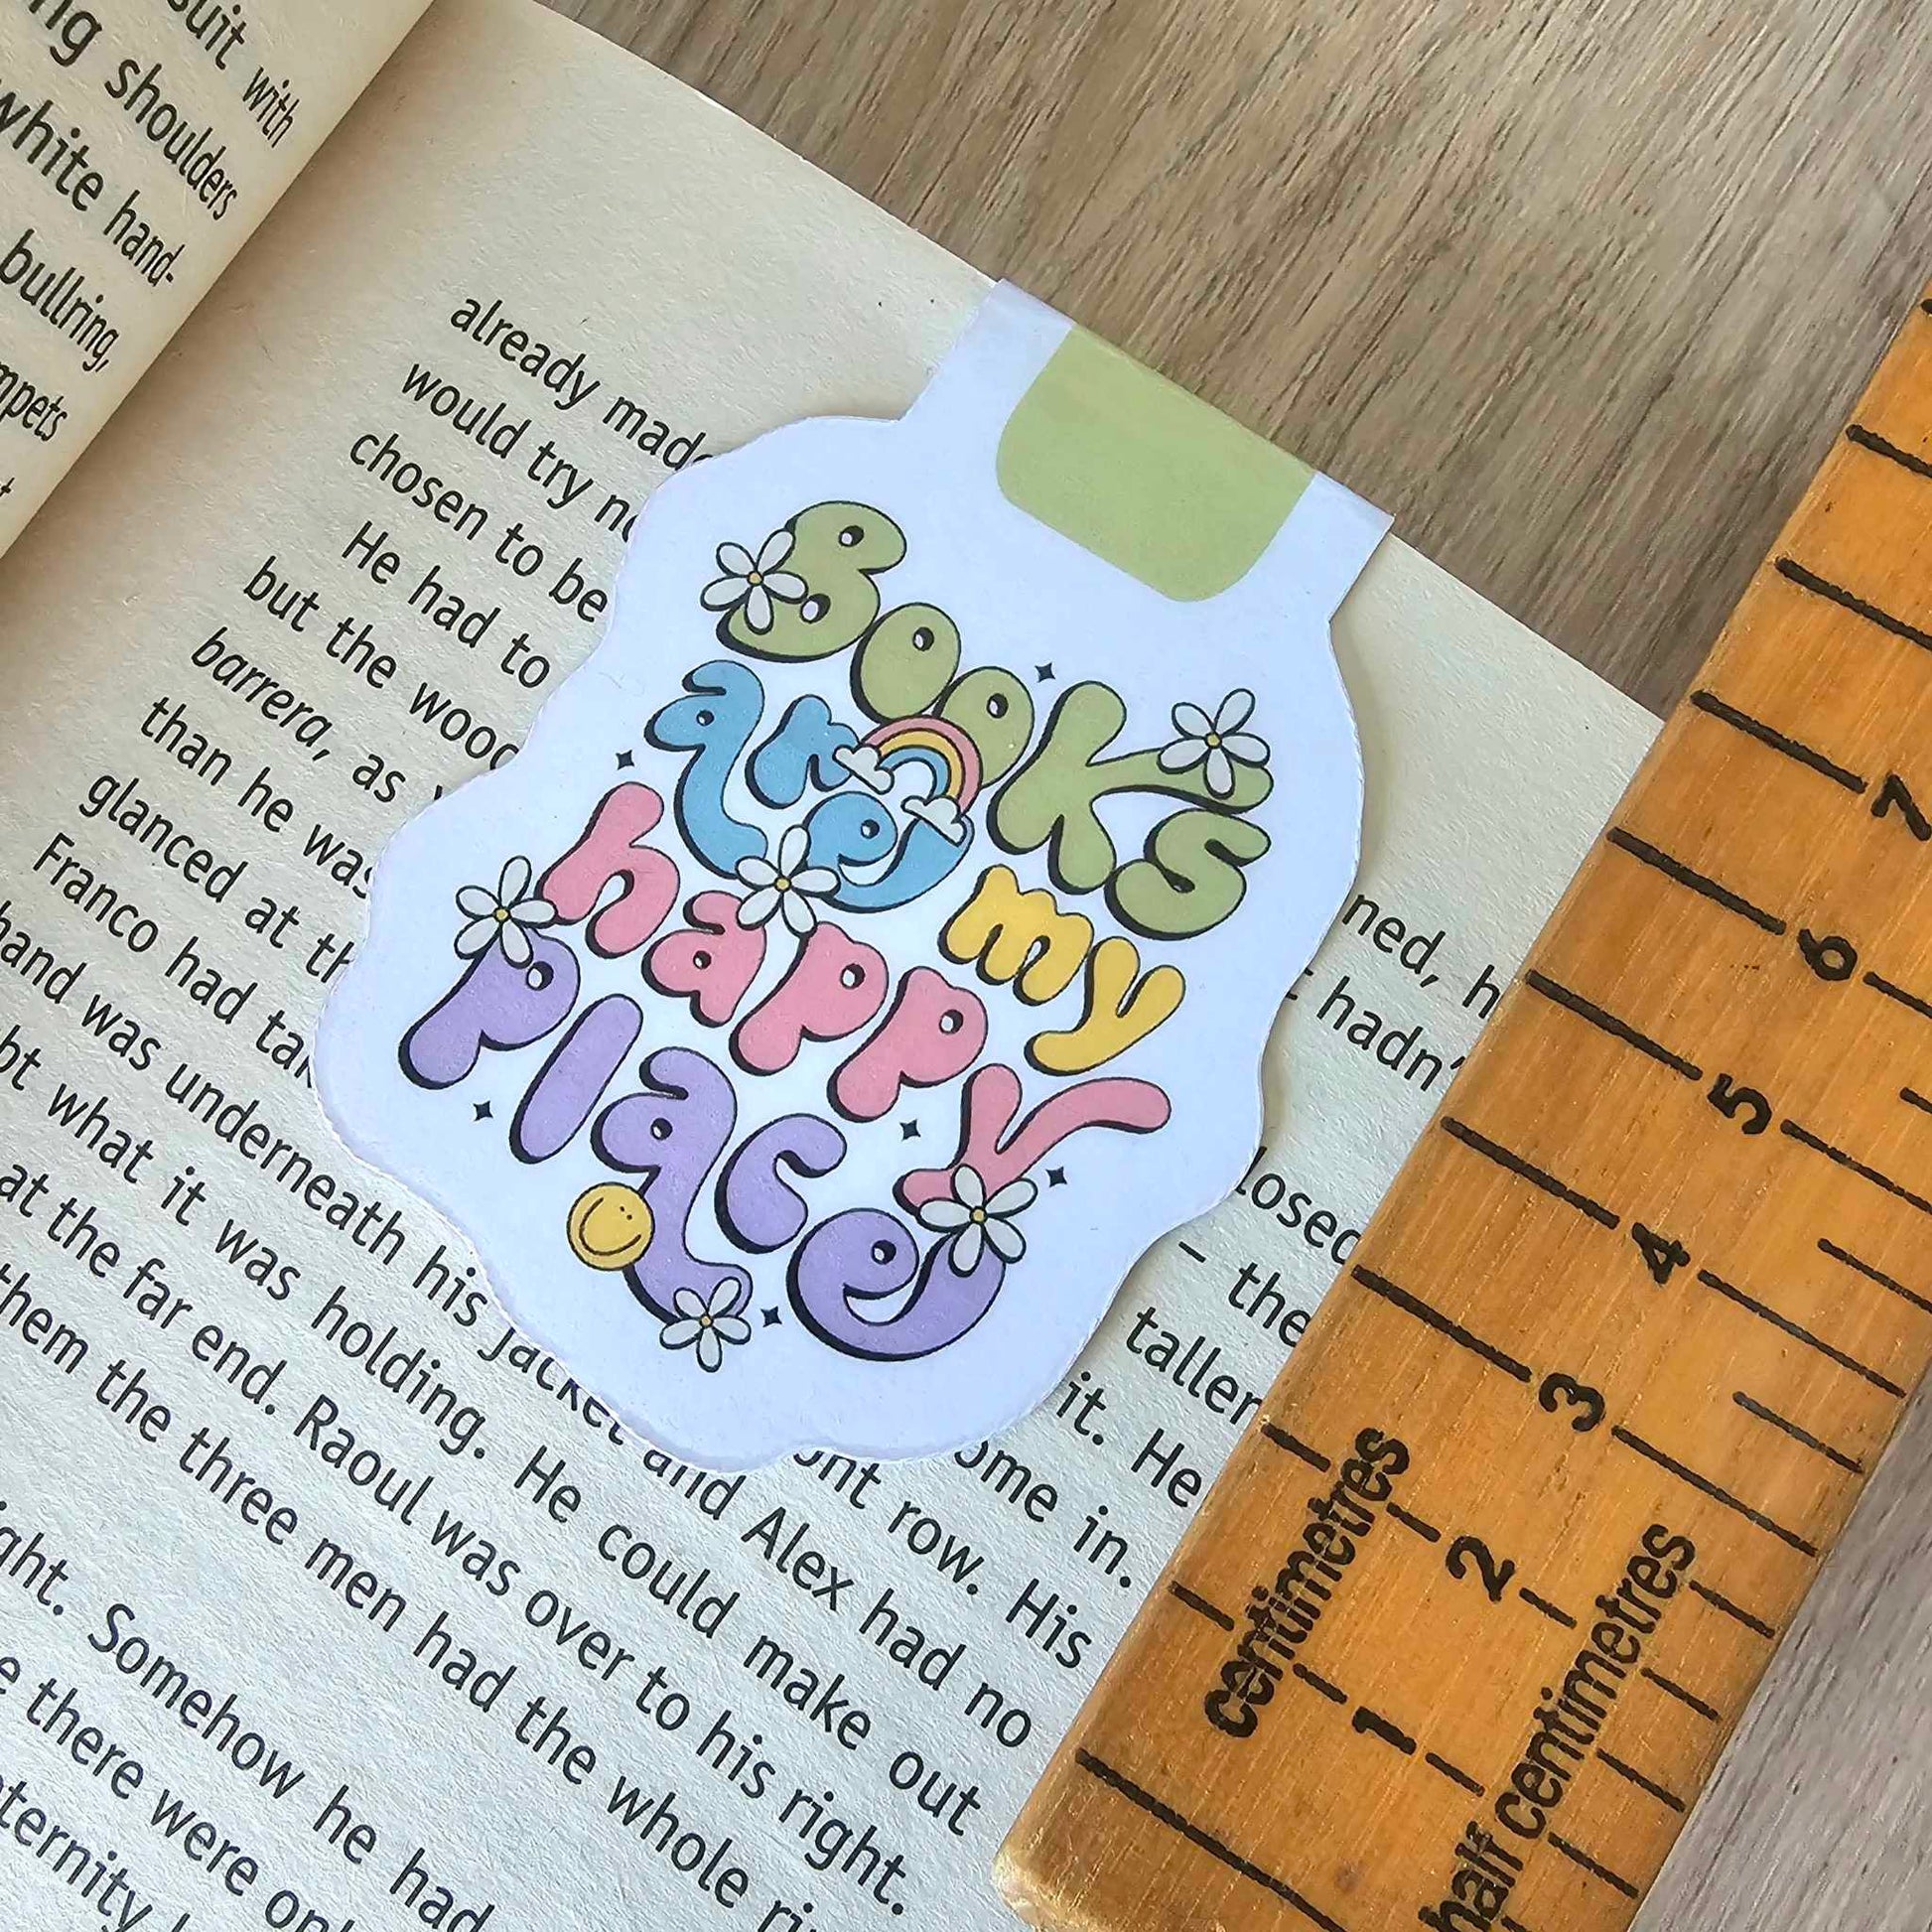 suit with
ng shoulders
white hand-
bullring,
mpets
already made
would try no
chosen to be
He had to
but the wood
barrera, as
than he was
glanced at th
Franco had tak
hand was underneath his jacket and Alex had no
bt what it was holding. He could make out
at the far end. Raoul was over to his right.
them the three men had the whole ri
ight. Somehow he had
e there were onl
ternity
ned, h
t hadn'
losed
– the
taller
it. He
ome in.
ont row. His
Books
are my
happy
place
7
6
5
4
3
2
1
centimetres
half centimetres